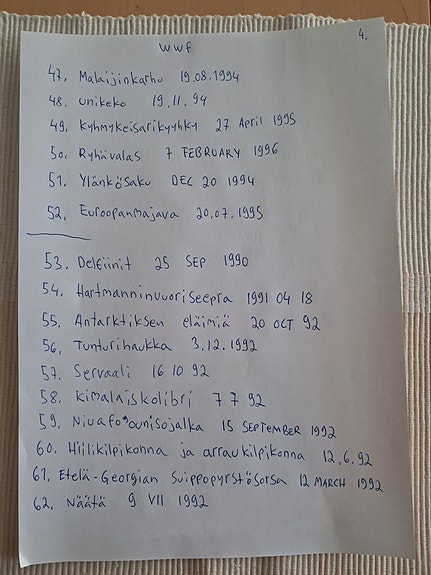 4.
WWF
47. Malaijinkarhu 19.08.1994
48. Unikeko 19.11.94
49. Kyhmykeisarikyyhky 27 April 1995
50. Ryhävalas 7 FEBRUARY 1996
51. Ylänkösaku DEC 20 1994
52. Euroopanmajava 20.07.1995
53. Delfiinit 25 SEP 1990
54. Hartmanninvuoriseepra 1991 04 18
55. Antarktiksen eläimiä 20 OCT 92
56. Tunturihaukka 3.12.1992
57. Servaali 16 10 92
58. Kimalaiskolibri 7 7 92
59. Niuafo'ounisojalka 15 SEPTEMBER 1992
60. Hiilikilpikonna ja arraukilpikonna 12.6.92
61. Etelä-Georgian Suippopyrstösorsa 12 MARCH 1992
62. Näätä 9 VII 1992